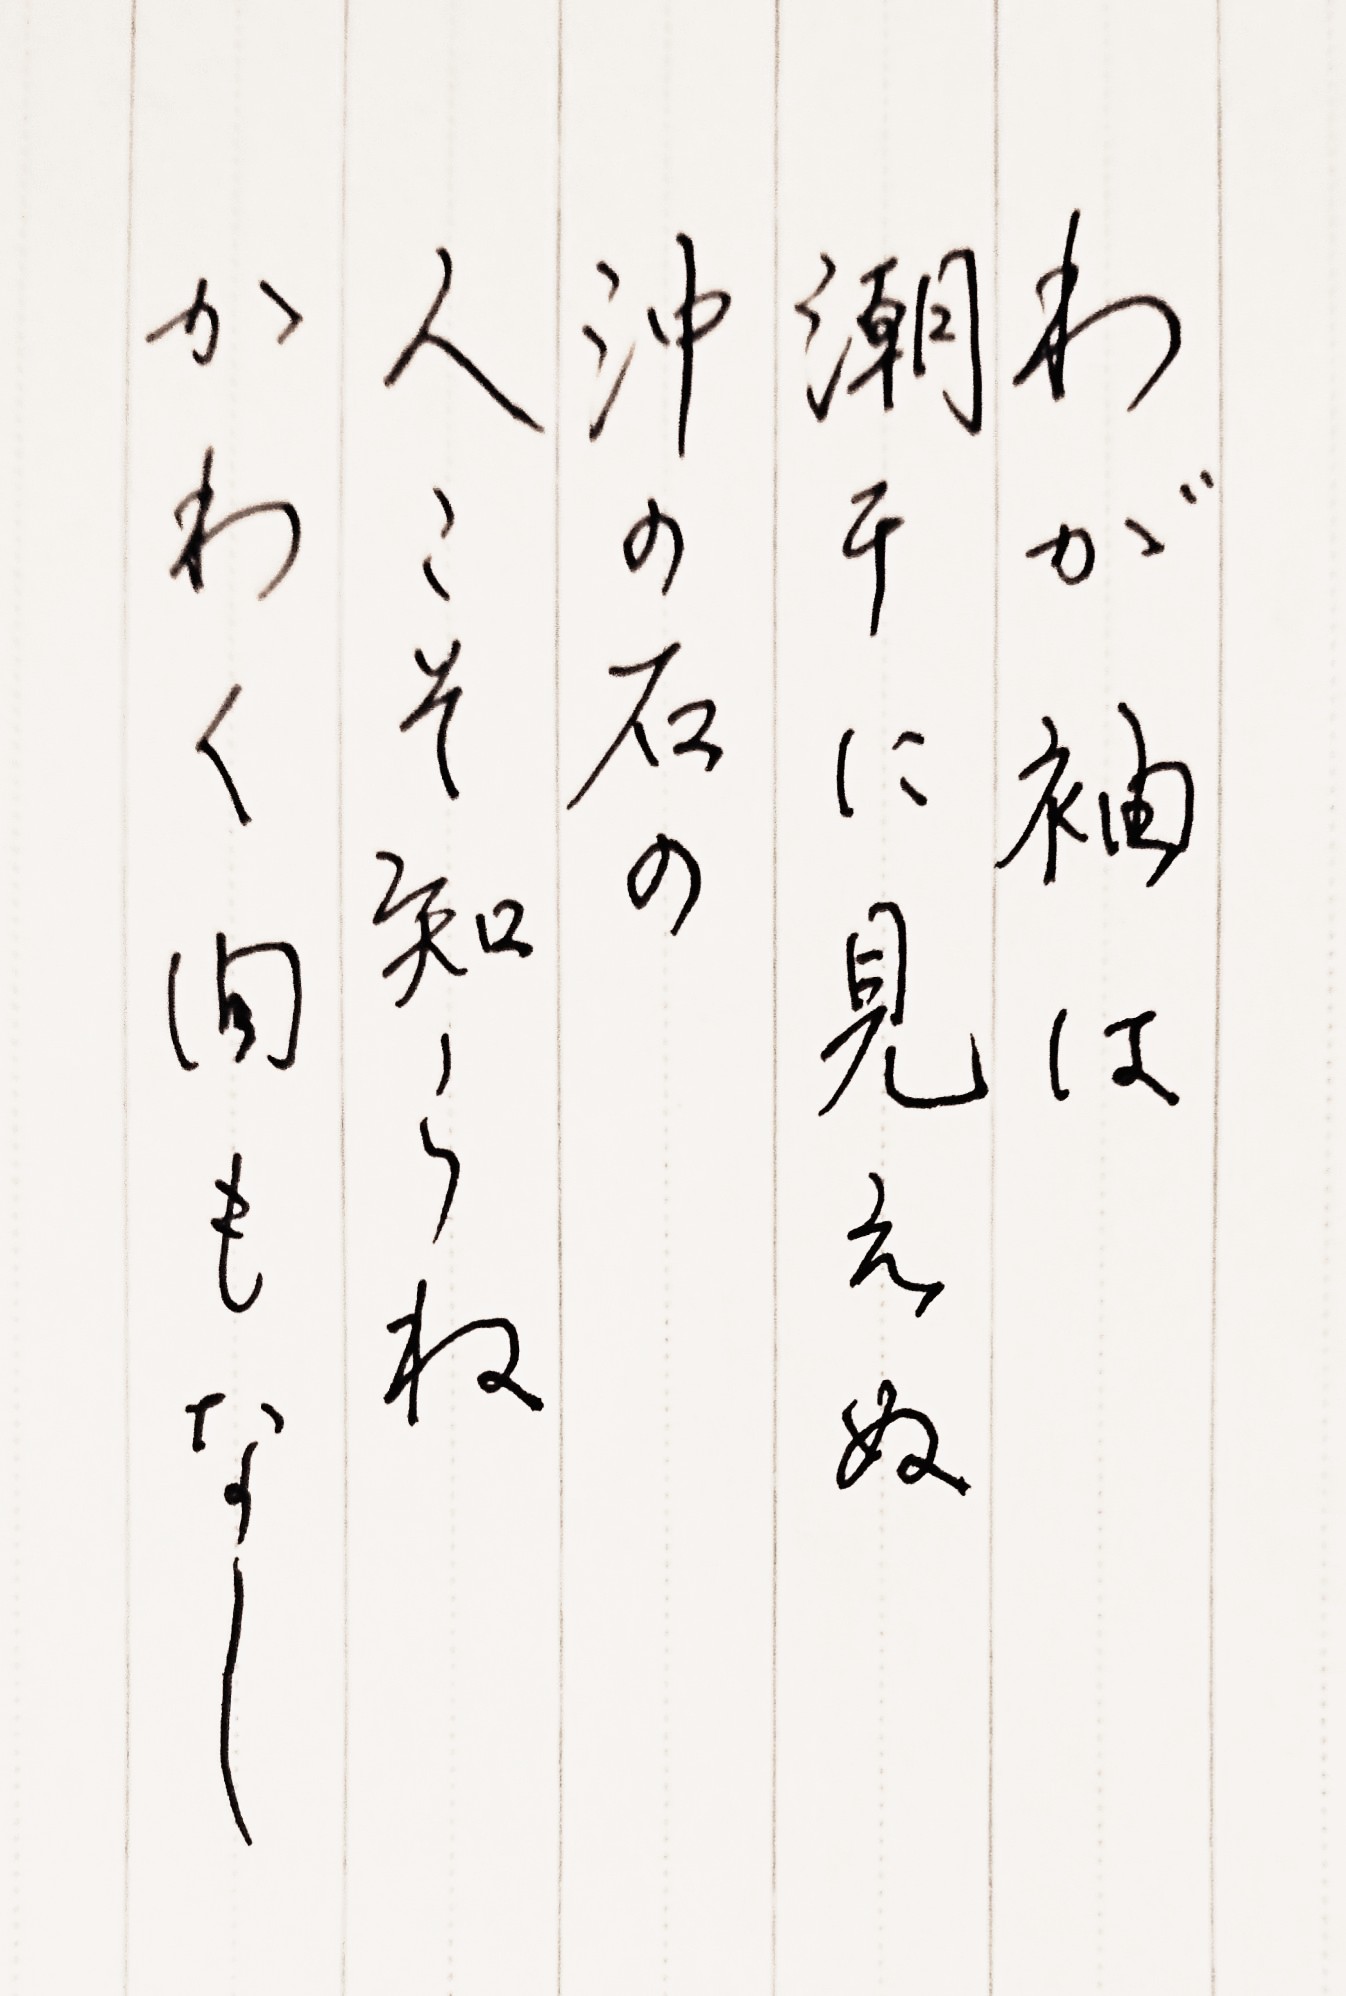 わが袖は
潮干に見えぬ
沖の石の
人こそ知らね
かわく間もなし